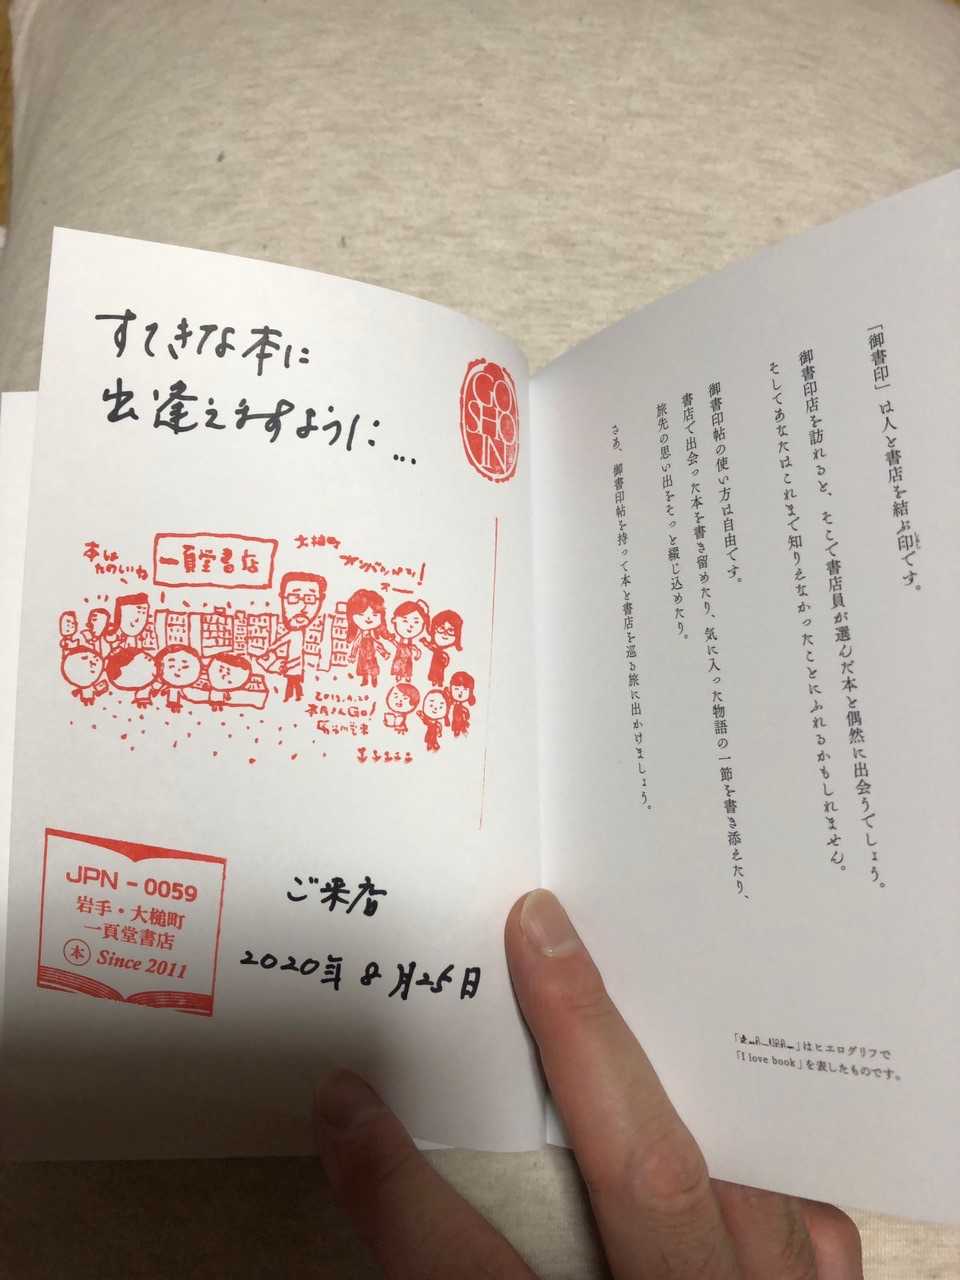 すてきな本に
出逢えますように…
GO
SHO
IN
本は
たのしいね
一頁堂書店
大槌町
ガンバッペシ!
オー
JPN-0059
岩手・大槌町
一頁堂書店
本 Since 2011
ご来店
2020年8月25日
「御書印」は人と書店を結ぶ印です。
御書印店を訪れると、そこで書店員が選んだ本と偶然に出会うでしょう。
そしてあなたはこれまで知りえなかったことにふれるかもしれません。
御書印帖の使い方は自由です。
書店で出会った本を書き留めたり、気に入った物語の一節を書き添えたり、
旅先の思い出をそっと綴じ込めたり。
さあ、御書印帖を持って本と書店を巡る旅に出かけましょう。
」はヒエログリフで
「I love book」を表したものです。